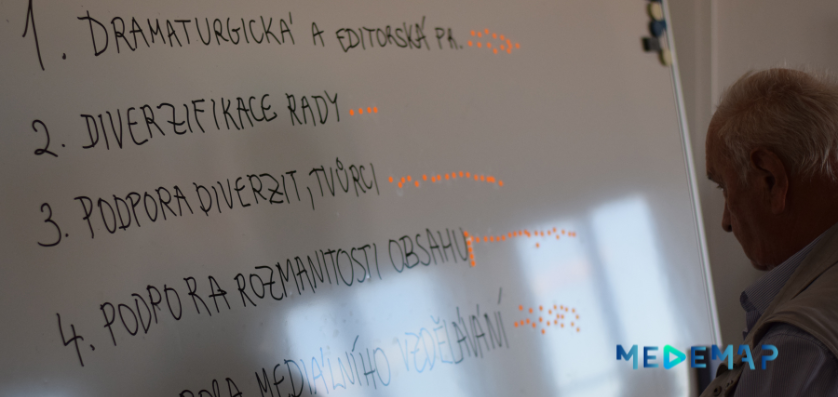 1. DRAMATURGICKÁ A EDITORSKÁ PR.
2. DIVERZIFIKACE RADY
3. PODPORA DIVERZIT, TVŮRCI
4. PODPORA ROZMANITOSTI OBSAHU
MEDIÁLNÍHO VZDĚLÁVÁNÍ
MEDEMAP